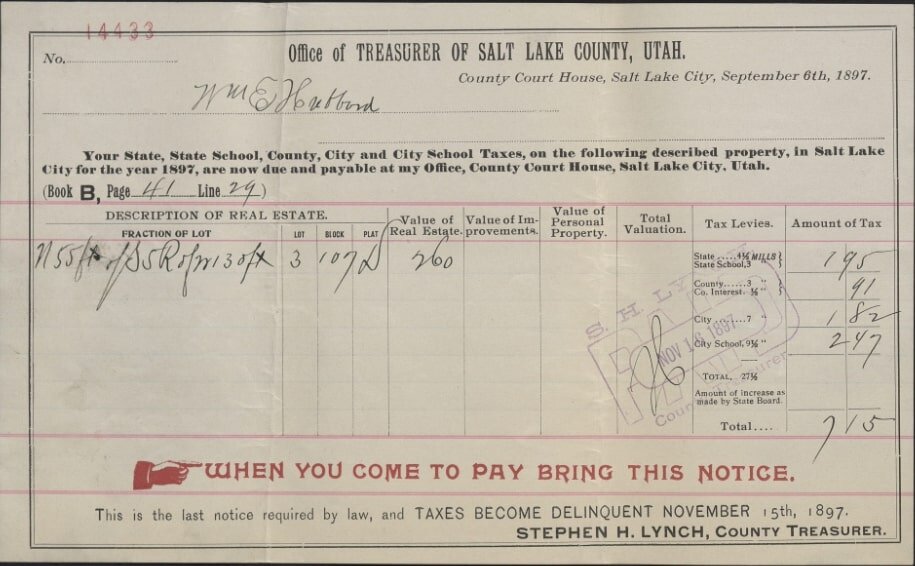 14433
No.
Office of TREASURER OF SALT LAKE COUNTY, UTAH.
County Court House, Salt Lake City, September 6th, 1897.
Wm E Hubbard
Your State, State School, County, City and City School Taxes, on the following described property, in Salt Lake
City for the year 1897, are now due and payable at my Office, County Court House, Salt Lake City, Utah.
(Book B, Page 41 Line 29)
DESCRIPTION OF REAL ESTATE. Value of Real Estate. Value of Improvements. Value of Personal Property. Total Valuation. Tax Levies. Amount of Tax
FRACTION OF LOT LOT BLOCK PLAT
N 55 ft of S 5 R of W 130 ft 3 107 D 260
State 4½ MILLS
State School, 3 " 1 95
County 3 "
Co. Interest. ½ " 91
City 7 " 1 82
City School, 9½ " 2 47
TOTAL, 27½
Amount of increase as
made by State Board.
Total.... 7 15
S. H. LY
PAID
NOV 1 1897
County Treasurer
WHEN YOU COME TO PAY BRING THIS NOTICE.
This is the last notice required by law, and TAXES BECOME DELINQUENT NOVEMBER 15th, 1897.
STEPHEN H. LYNCH, COUNTY TREASURER.